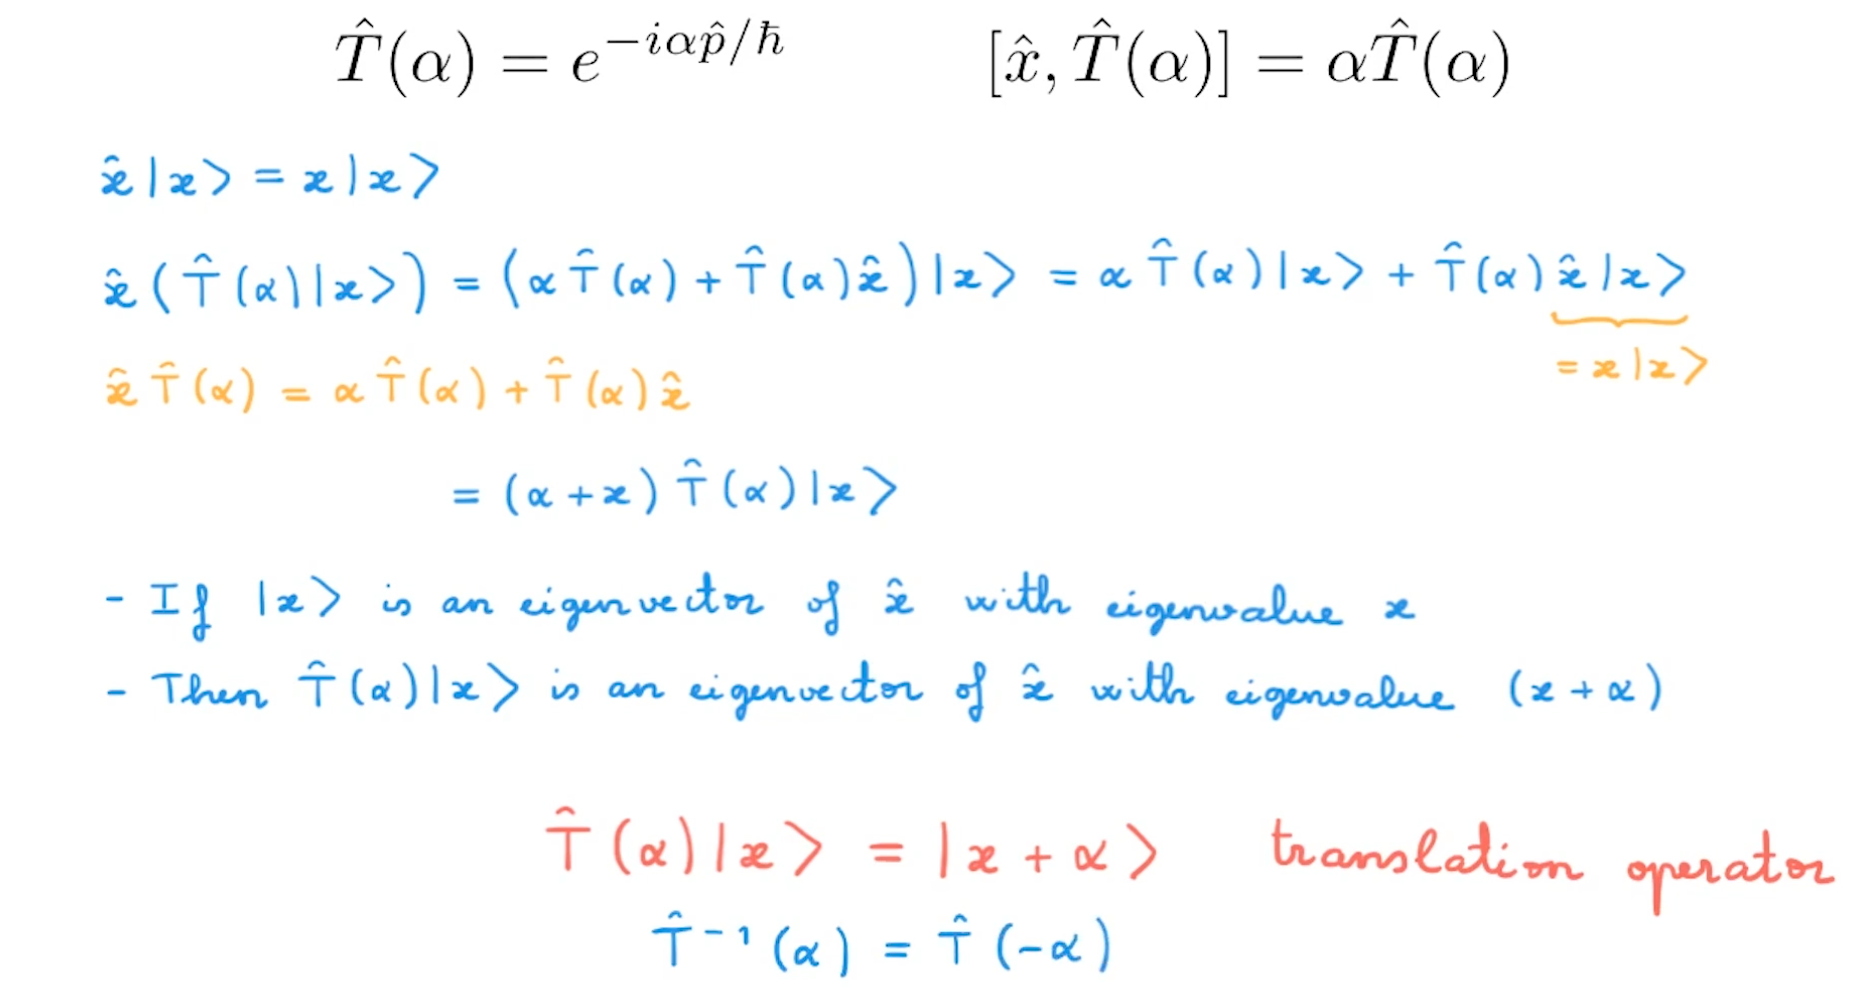 T̂(α) = e^{−iαp̂/ħ}    [x̂, T̂(α)] = αT̂(α)
x̂|x⟩ = x|x⟩
x̂(T̂(α)|x⟩) = (αT̂(α) + T̂(α)x̂)|x⟩ = αT̂(α)|x⟩ + T̂(α)x̂|x⟩
= x|x⟩
x̂T̂(α) = αT̂(α) + T̂(α)x̂
= (α + x)T̂(α)|x⟩
- If |x⟩ is an eigenvector of x̂ with eigenvalue x
- Then T̂(α)|x⟩ is an eigenvector of x̂ with eigenvalue (x + α)
T̂(α)|x⟩ = |x + α⟩    translation operator
T̂⁻¹(α) = T̂(−α)